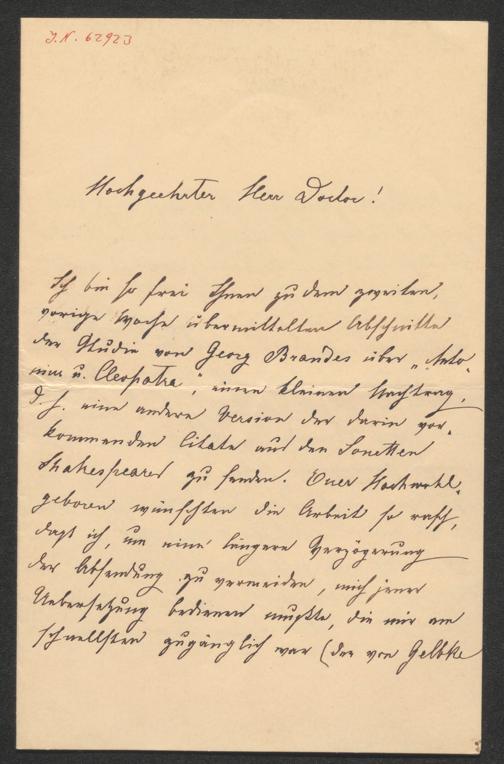 I.N. 62923
Hochgeehrter Herr Doctor!
Ich bin so frei Ihnen zu dem zweiten,
vorige Woche übermittelten Abschnitte
der Studie von Georg Brandes über „Anto-
nius u. Cleopatra", einen kleinen Nachtrag,
d. h. eine andere Version der darin vor-
kommenden Citate aus den Sonetten
Shakespeares zu senden. Euer Hochwohl-
geboren wünschten die Arbeit so rasch,
daß ich, um eine längere Verzögerung
der Absendung zu vermeiden, mich jener
Uebersetzung bedienen mußte, die mir am
schnellsten zugänglich war (der von Gelbke